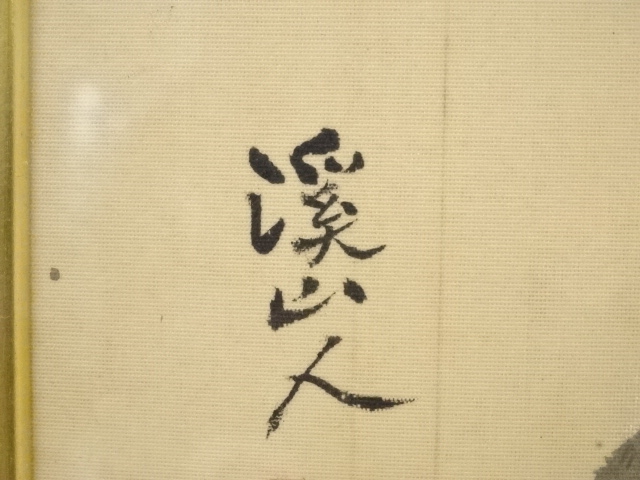 溪山人